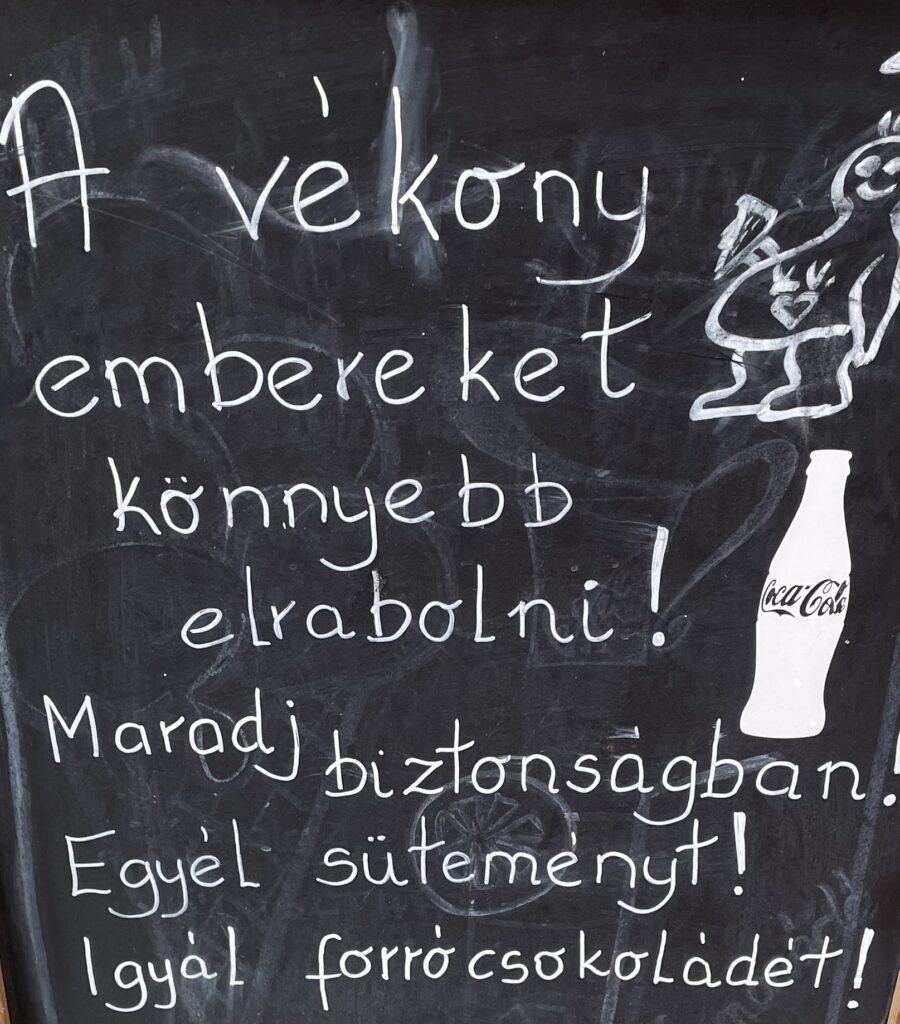 A vékony
embereket
könnyebb
elrabolni!
Coca-Cola
Maradj biztonságban!
Egyél süteményt!
Igyál forró csokoládét!